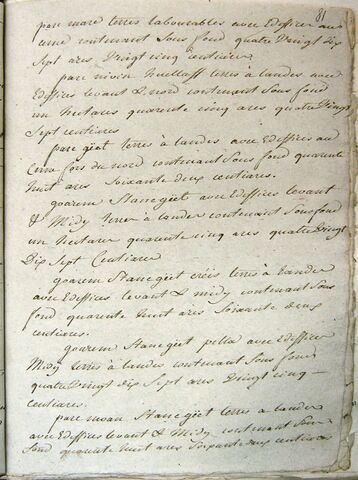 81
parc mare terres labourables avec Edeffices au
cerné contenant Sous fond quatre Vingt Dix
Sept ares Vingt cinq centiares
parc niven huellaff terres à landes avec
Edeffices levant & nord contenant Sous fond
un hectares quarente cinq ares quatre Vingt
Sept centiares
parc géot terres à landes avec Edeffices au
Cerné fors du nord contenant Sous fond quarente
huit ares Soixante deux centiares.
goarem Stanegéet avec Edeffices levant
& Midy terres à landes contenant Sous fond
un hectares quarente cinq ares quatre Vingt
Dix Sept Centiares
goarem Stanegéet créis terres à landes
avec Edeffices levant & midy contenant Sous
fond quarente huit ares Soixante deux
centiares.
goarem Stanegéet pella avec Edeffices
Midy terres à landes contenant Sous fond
quatre Vingt dix Sept ares Vingt cinq
centiares.
parc moan Stanegéet terres à landes
avec Edeffices levant & Midy contenant Sous
fond quarente huit ares Soixante deux centiares